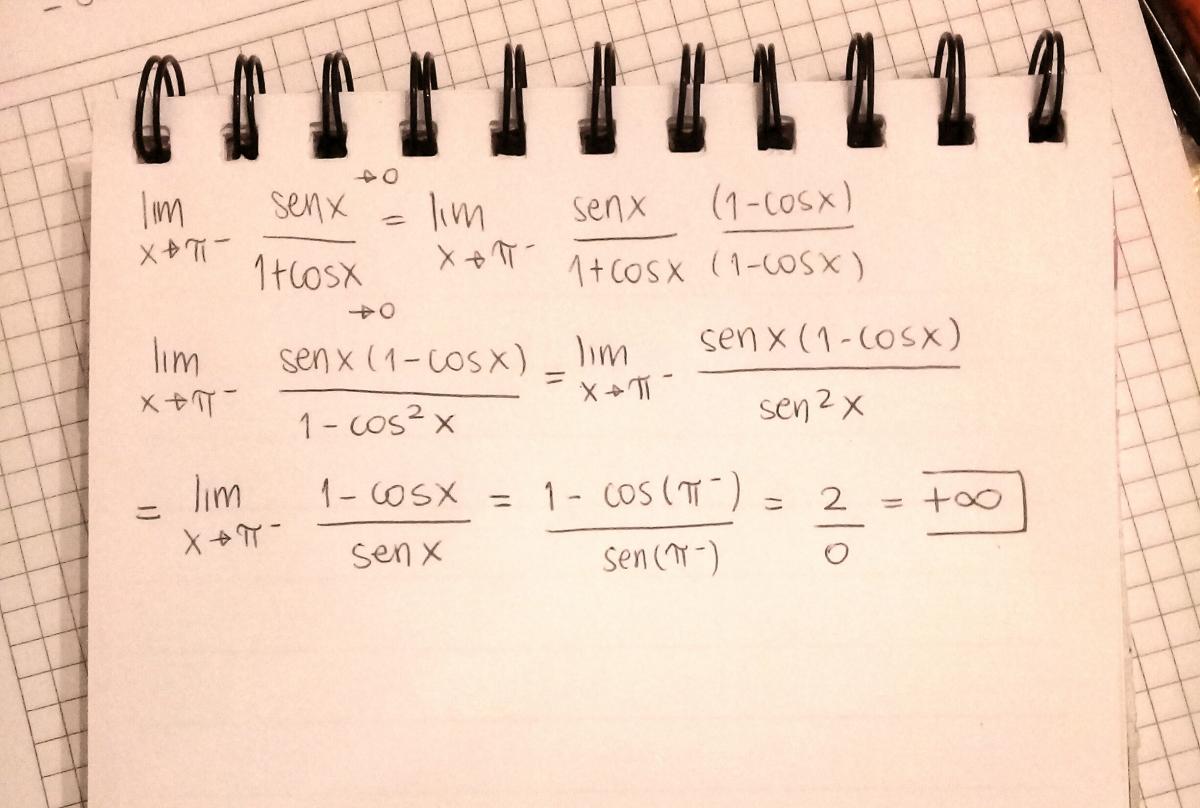 lim x→π⁻ senx →0 / 1+cosx →0 = lim x→π⁻ senx / 1+cosx (1-cosx) / (1-cosx)
lim x→π⁻ senx(1-cosx) / 1-cos²x = lim x→π⁻ senx(1-cosx) / sen²x
= lim x→π⁻ 1-cosx / senx = 1-cos(π⁻) / sen(π⁻) = 2 / 0 = +∞